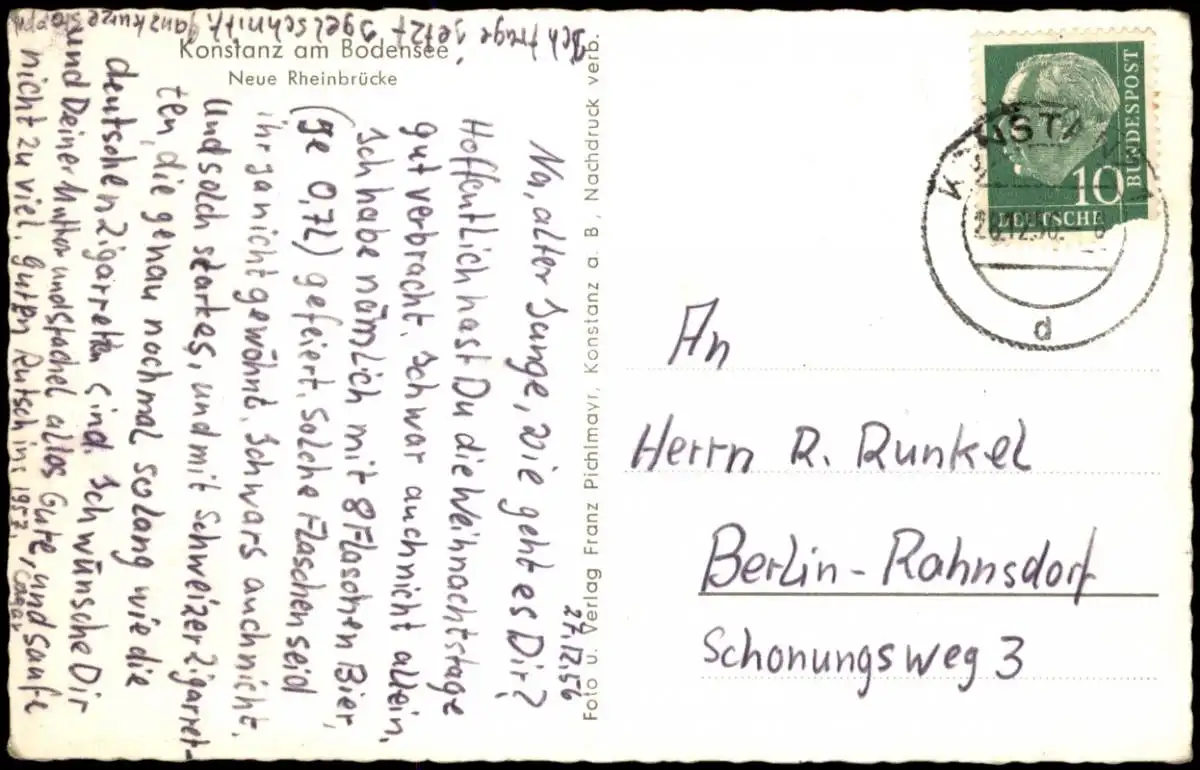 Konstanz am Bodensee
Neue Rheinbrücke
27.12.56
Na, alter Junge, wie geht es Dir?
Hoffentlich hast Du die Weihnachtstage
gut verbracht. Ich war auch nicht allein,
Ich habe nämlich mit 8 Flaschen Bier,
(Je 0,7l) gefeiert. Solche Flaschen seid
ihr ga nicht gewöhnt. Ich wars auch nicht.
Und solch starkes, und mit Schweizer Zigarret-
ten, die genau nochmal so lang wie die
deutschen Zigarreten sind. Ich wünsche Dir
und Deiner Mutter und Stachel alles Gute, und saufe
nicht zu viel. Guten Rutsch ins 1957.
Ich trage jetzt Igelschnitt. ganz kurze
Foto u. Verlag Franz Pichlmayr, Konstanz a. B, Nachdruck verb.
DEUTSCHE
BUNDESPOST
10
d
An
Herrn R. Runkel
Berlin-Rahnsdorf
Schonungsweg 3